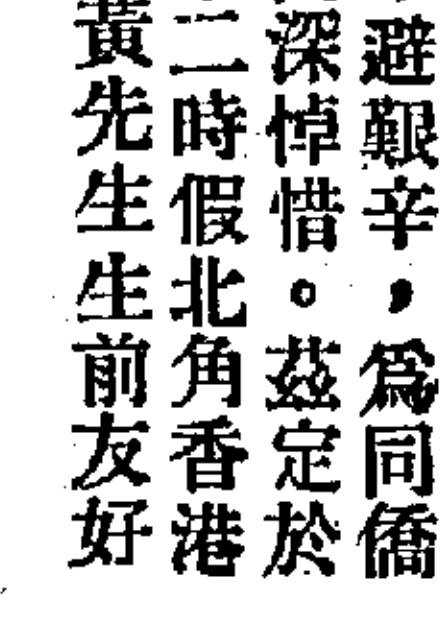 避艱辛，爲同僑
深悼惜。茲定於
二時假北角香港
黃先生生前友好